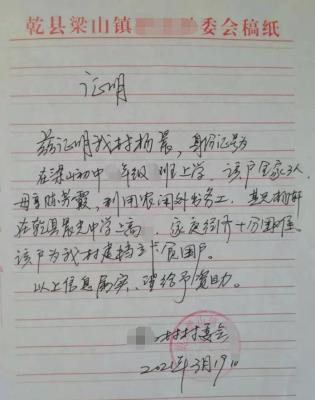 乾县梁山镇 委会稿纸
证明
兹证明我村杨晨,身份证号为
在梁山初中 年级 班上学,该户全家3人
母亲陈芳霞,利用农闲外出务工,其兄杨
在乾县晨光中学上高,家庭经济十分困难
该户为我村建档立卡贫困户。
以上信息属实,望给予资助。
村村委会
2021年3月19日